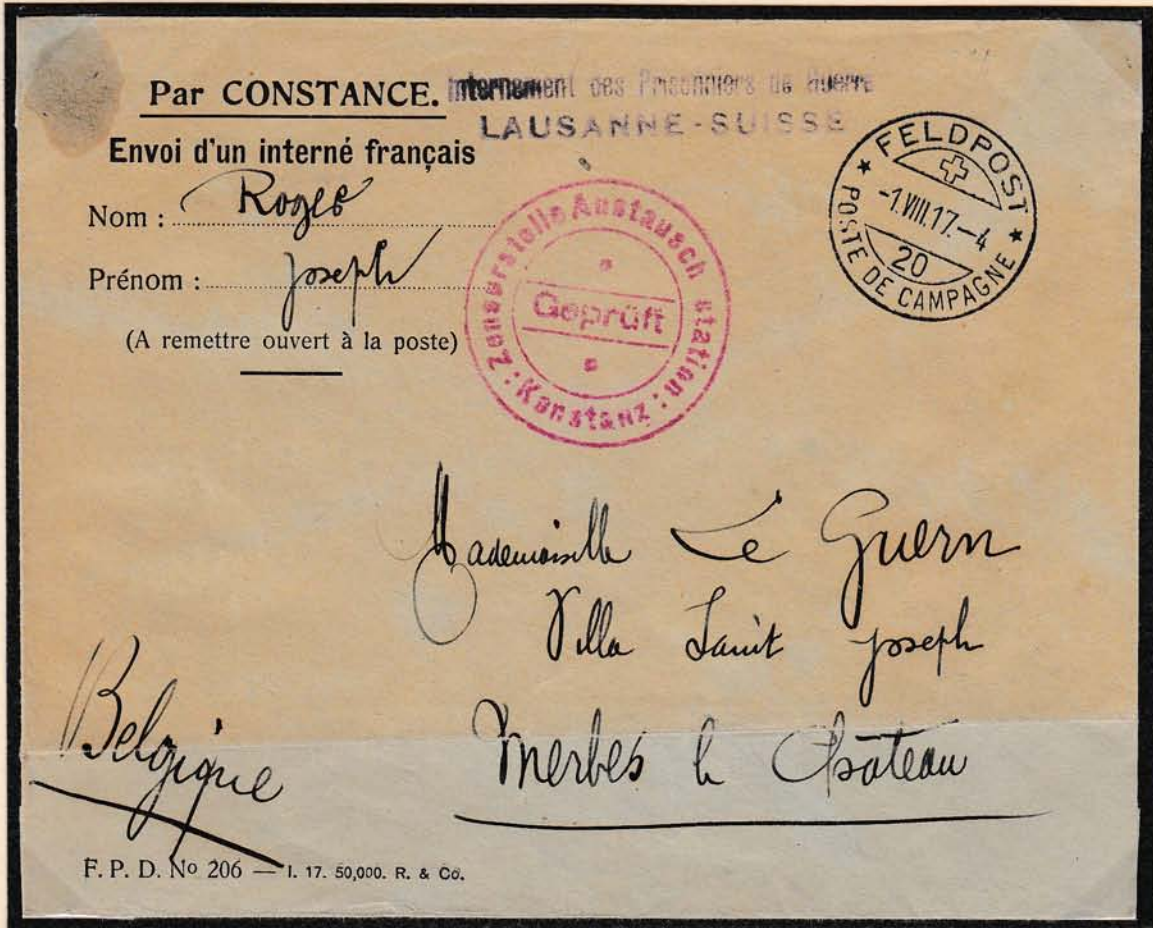 Par CONSTANCE.
Internement des Prisonniers de Guerre
LAUSANNE-SUISSE
Envoi d'un interné français
Nom : Roges
Prénom : Joseph
(A remettre ouvert à la poste)
Zensurstelle Austausch station: Konstanz:
Geprüft
FELDPOST
-1.VIII.17.-4
20
POSTE DE CAMPAGNE
Mademoiselle Le Guern
Villa Saint Joseph
Merbes le Château
Belgique
F. P. D. No 206 — I. 17. 50,000. R. & Co.